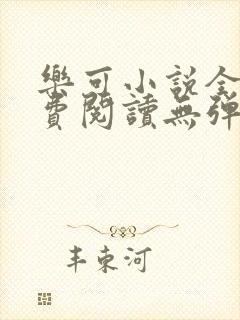 樂可小說全
費閱讀無彈
丰東河